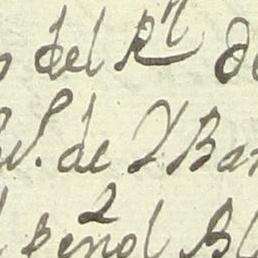 del Rl de
S. de Y Bar
2
Peñol Bl